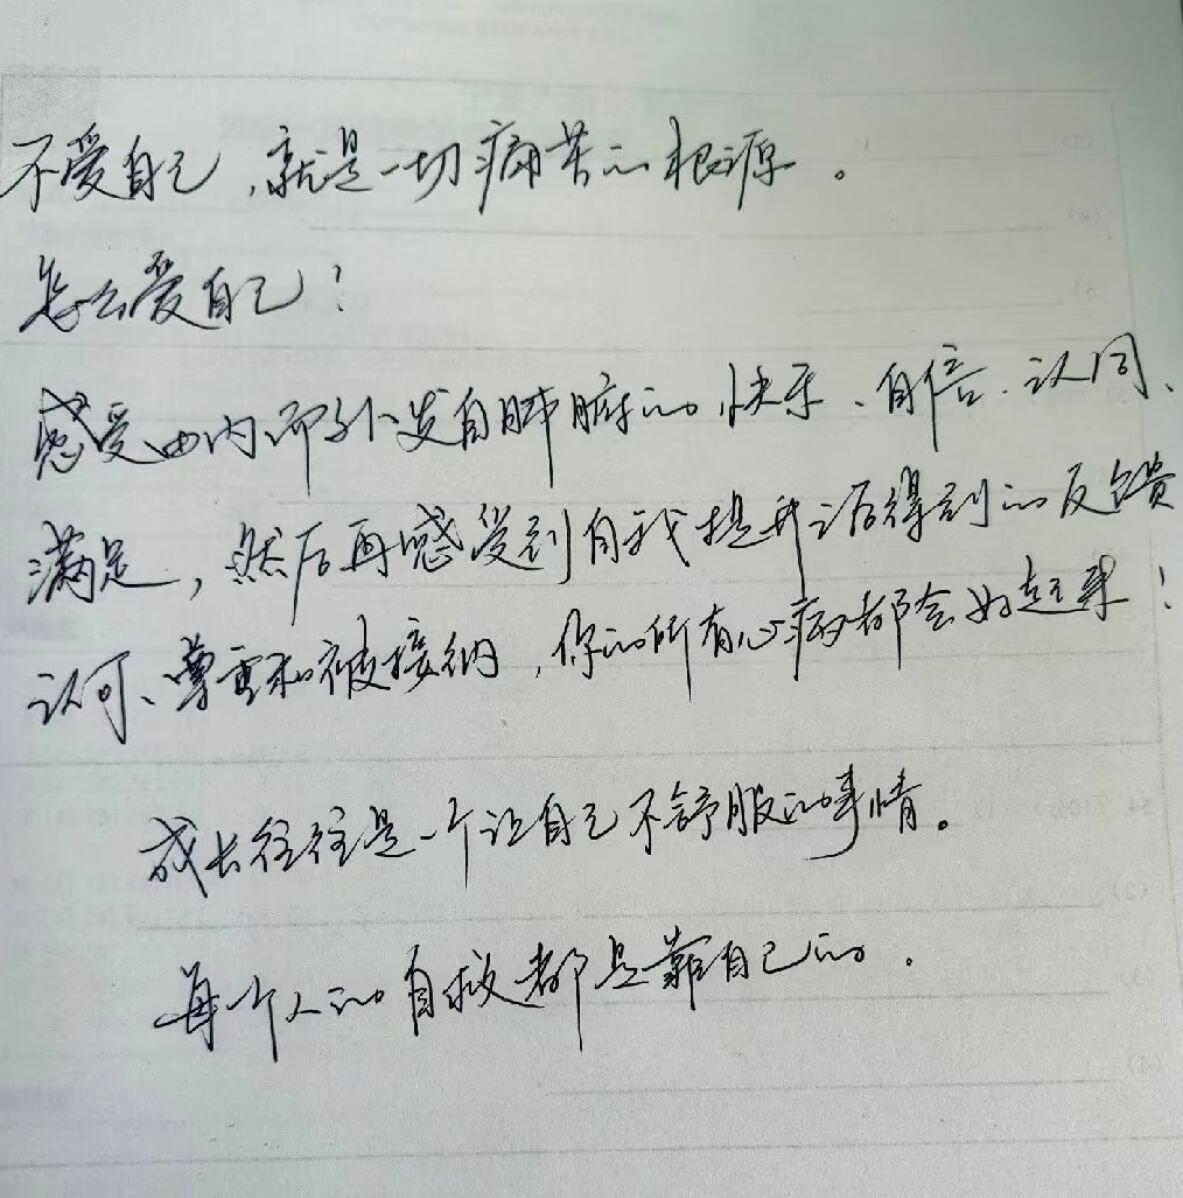 不爱自己，就是一切痛苦的根源。
怎么爱自己？
感受由内而外发自肺腑的快乐、自信、认同、
满足，然后再感受到自我提升之后得到的反馈
认可、尊重和被接纳，你的所有心病都会好起来！
成长往往是一个让自己不舒服的事情。
每个人的自救都是靠自己的。